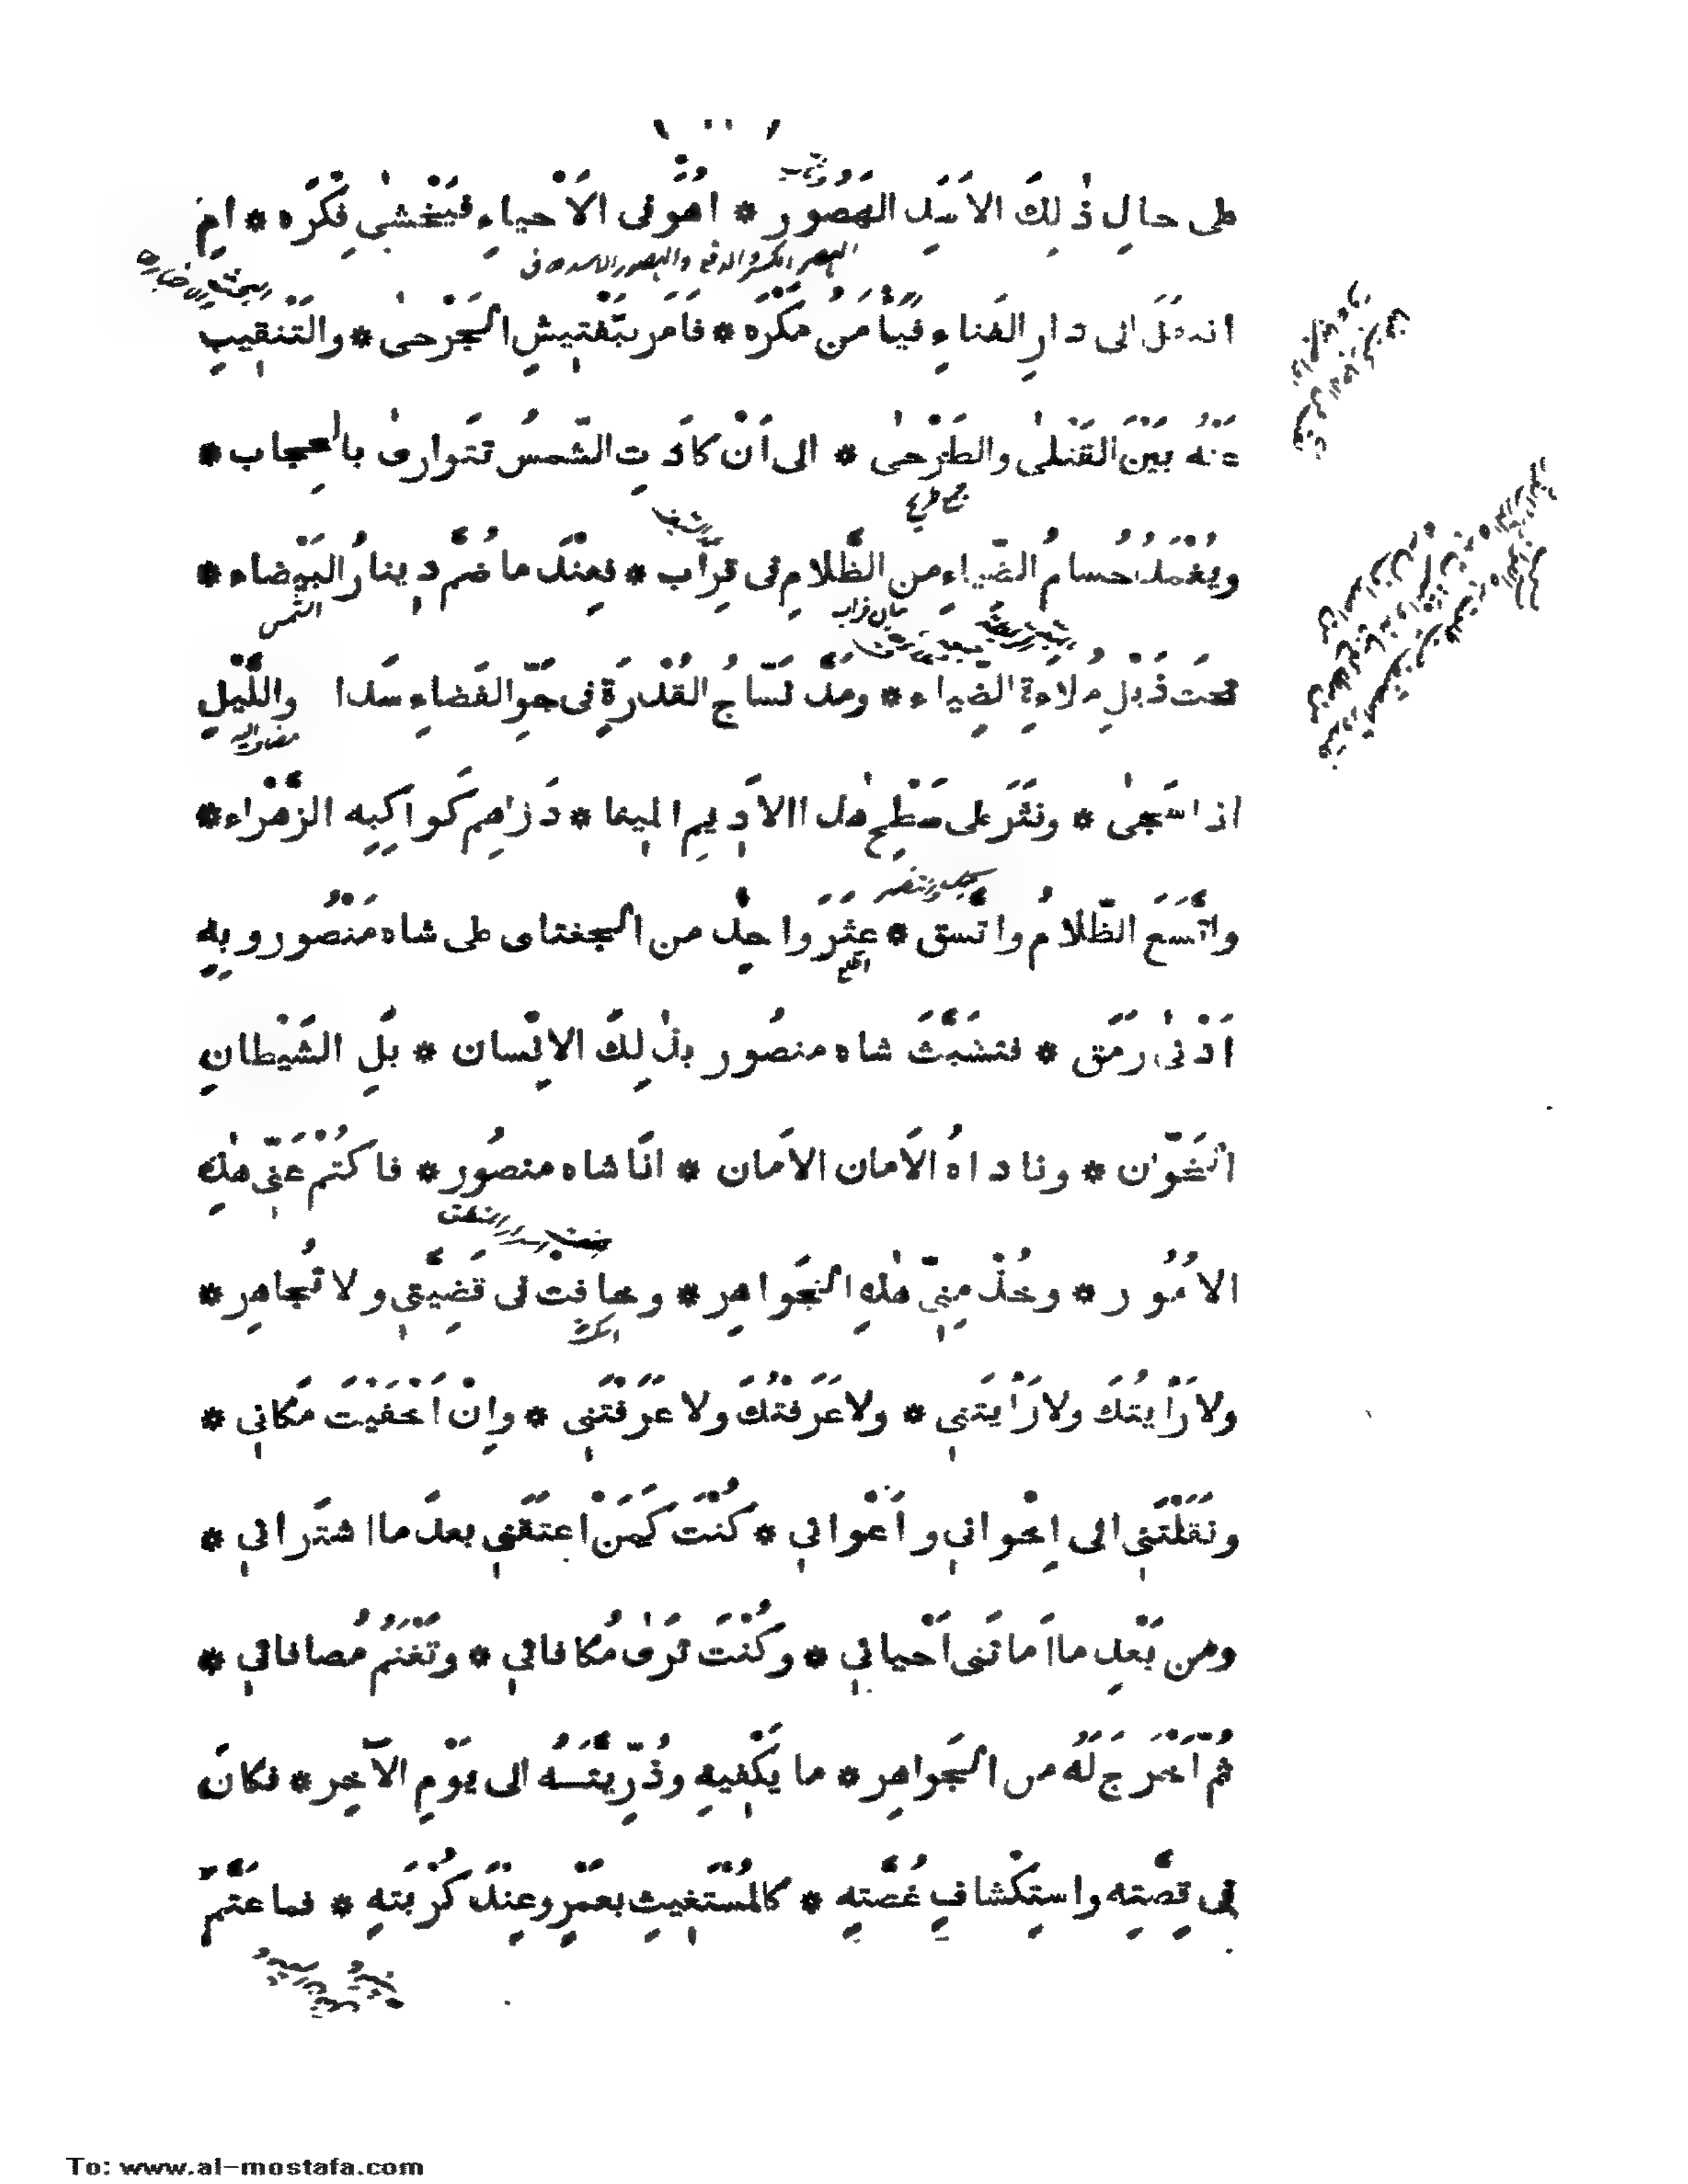 على حالِ ذٰلِكَ الاَسَدِ الهَصُورِ * اَهُوَ فى الاَحْياءِ فيَخْشىٰ فِكْرَه * ام
انتقل الى دارِ الفناءِ فيَأمَنُ مَكْرَه * فاَمَر بتَفْتيشِ الجَرْحىٰ * والتَنْقيبِ
عَنْهُ بَيْنَ القَتْلىٰ والطَرْحىٰ * الى اَنْ كادَتِ الشّمسُ تتَوارىٰ بالحِجاب *
ويُغْمَدُ حُسامُ الضّياءِ من الظَّلامِ فى قِراب * فعِنْدَ ما ضُمَّ دِينارُ البَيْضاء *
تحتَ ذَيْلِ مُلاءةِ الضِّياء * ومَدَّ نَسّاجُ القُدْرَةِ فى جَوِّ الفَضاءِ سَدا واللَّيْلِ
اذا سَجىٰ * ونَثَرَ على سَطْحِ هذا الاَدِيمِ المِينا * دَراهِم كَواكِبِه الزَّهْراء *
واتَّسَعَ الظّلامُ واتَّسق * عثَرَ واحِدٌ من الجغتاى على شاه مَنْصُور وبِه
اَدْنىٰ رَمَق * فتشَبَّثَ شاه منصُور بذٰلِكَ الاِنْسان * بَلِ الشَيْطانِ
الخَوّان * وناداهُ الاَمان الاَمان * انَا شاه منصُور * فاكتُمْ عَنّى هٰذِه
الاُمُور * وخُذْ مِنّى هٰذِه الجَواهِر * وخافِتْ فى قَضِيَّتى ولا تُجاهِر *
ولا رَأيتُكَ ولا رَأيتَنى * ولا عَرَفتُكَ ولا عَرَفْتَنى * وانْ اَخْفَيْتَ مَكانى *
ونَقَلْتَنى الى اِخْوانى واَعْوانى * كُنْتَ كَمَنْ اعتَقَنى بعدَ ما اشتَرانى *
ومن بَعْدِ ما اَماتَنى اَحْيانى * وكُنْتَ تَرىٰ مُكافاتى * وتَغْنَمُ مُصافاتى *
ثُمَّ اَخْرَجَ لَهُ من الجَواهِر * ما يَكْفيهِ وذُرِّيَّتَهُ الى يَوْمِ الآخِر * فكانَ
فى قِصَّتِه واستِكْشافِ غُصَّتِه * كالمُسْتَغيثِ بعَمْرٍو عِنْدَ كُرْبَتِه * فما عَتَّمَ
To: www.al-mostafa.com